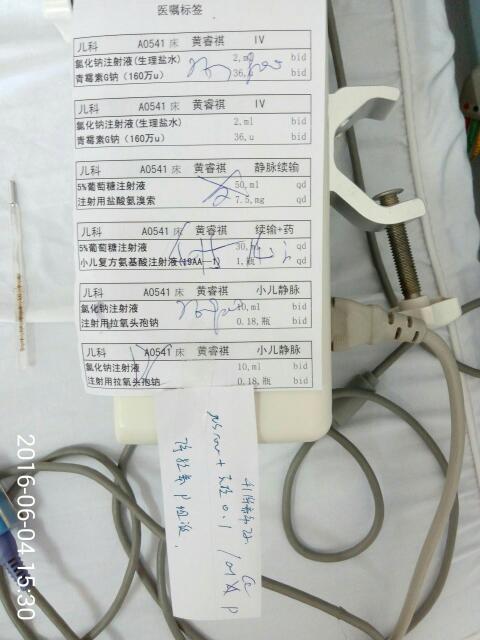 医嘱标签
儿科 A0541 床 黄睿祺 IV
氯化钠注射液(生理盐水) 2, ml bid
青霉素G钠(160万u) 36, bid
儿科 A0541 床 黄睿祺 IV
氯化钠注射液(生理盐水) 2, ml bid
青霉素G钠(160万u) 36, u bid
儿科 A0541 床 黄睿祺 静脉续输
5%葡萄糖注射液 50, ml qd
注射用盐酸氨溴索 7.5, mg qd
儿科 A0541 床 黄睿祺 续输+药
5%葡萄糖注射液 30, qd
小儿复方氨基酸注射液(19AA-I) 1, 瓶 qd
儿科 A0541 床 黄睿祺 小儿静脉
氯化钠注射液 10, ml bid
注射用拉氧头孢钠 0.18, 瓶 bid
儿科 A0541 床 黄睿祺 小儿静脉
氯化钠注射液 10, ml bid
注射用拉氧头孢钠 0.18, 瓶 bid
2016-06-04 15:30